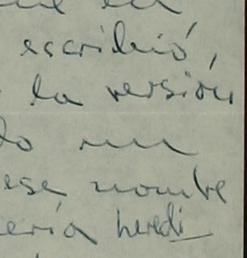 escribió,
la versión
un
ese nombre
ería heredi